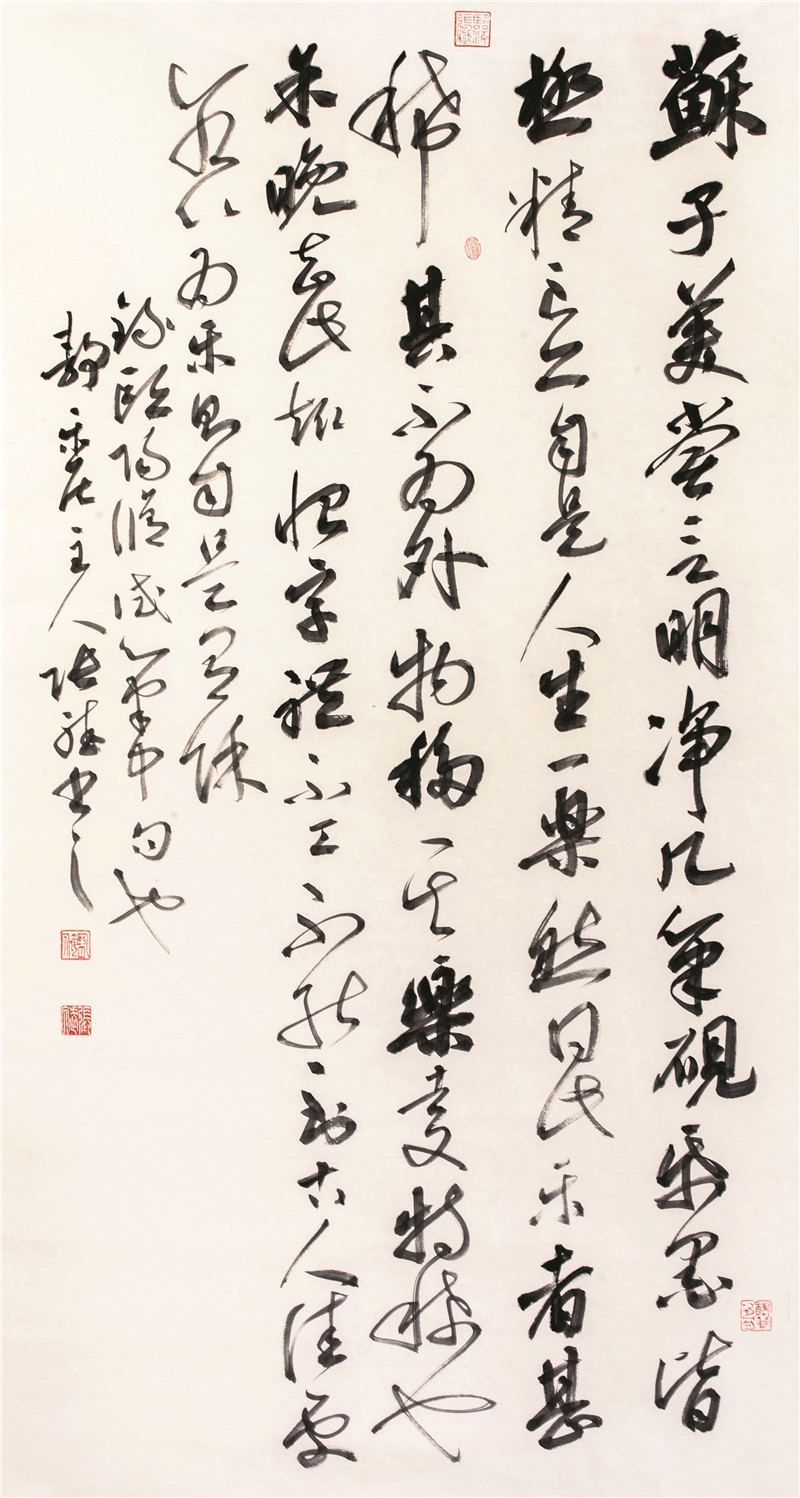 蘇子美嘗言明淨几筆硯紙墨皆
極精良亦自是人生一樂然此樂者甚
稀其不為外物移其樂者又特稀也
余晚知此趣恨字體不工不能到古人佳處
若以為樂則自是有餘
錄歐陽修試筆中句也
靜主人張書之